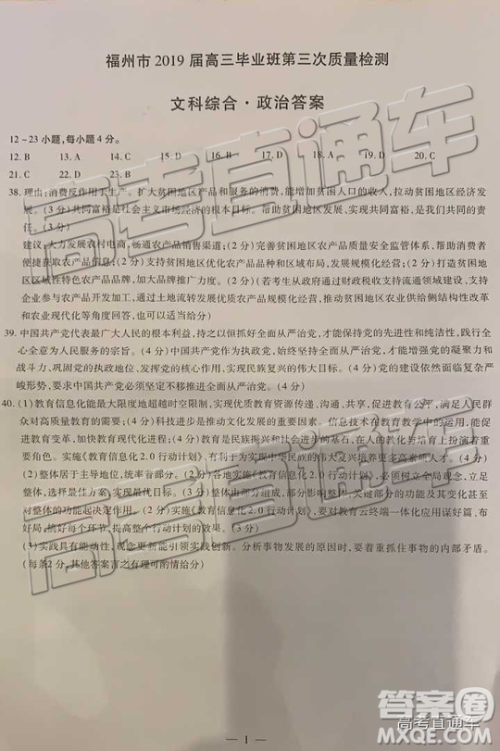 福州市 2019 届高三毕业班第三次质量检测
文科综合·政治答案
12～23小题,每小题4分。
12. B 13. A 14. C 15. D 16. D 17. B 18. D 19. B 20. C
21. C 22. B 23. C
38. 理由:消费反作用于生产。扩大贫困地区产品和服务的消费,能增加贫困人口的收入,拉动贫困地区经济发
展。(3分)共同富裕是社会主义市场经济的根本目标。帮助贫困地区发展,实现共同富裕,是我们共同的责
任。(3分)
建议:大力发展农村电商,畅通农产品销售渠道;(2分)完善贫困地区农产品质量安全监管体系,帮助消费者
便捷获取农产品信息;(2分)支持贫困地区优化农产品品种和区域布局,发展规模化经营;(2分)打造贫困地
区区域性特色农产品品牌,加大品牌推广力度。(2分)(若考生从政府通过财政税收支持流通领域建设,支持
企业参与农产品生产加工、开发农产品,通过土地流转发展优质农产品规模化经营,推动贫困地区农业供给侧结构性改革
和农业现代化等角度回答,也可以适当给分)
39. 中国共产党代表最广大人民的根本利益,持之以恒抓好全面从严治党,才能保持党的先进性和纯洁性,践行全
心全意为人民服务的宗旨。(4分)中国共产党作为执政党,始终坚持全面从严治党,才能增强党的凝聚力和
战斗力,巩固党的执政地位,实现中华民族伟大复兴的伟大目标。(4分)党的建设依然面临复杂严
峻形势,要求中国共产党必须坚定不移推进全面从严治党。(4分)
40. (1)教育信息化能最大限度地超越时空限制,实现优质教育资源传递、沟通、共享,促进教育公平,满足人民群
众对高质量教育的需要;(4分)科技进步是推动文化发展的重要因素,信息技术在教育教学中的运用,
能促进教育变革,加快教育现代化进程;(3分)教育是民族振兴和社会进步的基石,在人的教化与培育上扮演着重要
角色。实施《教育信息化2.0行动计划》,有利于为实现中华民族的伟大复兴培养更多高素质人才。(4分)
(2)整体居于主导地位,统率着部分。(2分)各地实施《教育信息化2.0行动计划》,必须树立全局观念,立足
整体,选择最佳方案,实现最优目标。(3分)整体由部分构成,部分影响整体,关键部分的功能及其变化甚至
对整体的功能起决定作用。(2分)实施《教育信息化2.0行动计划》,要对教育云终端一体化应用谋好篇、布
好局,搞好每个环节,提高整个行动计划的效果。(3分)
(3)实践具有能动性,要用创新思维引领实践创新。分析事物发展的原因时,要着重抓住事物的内部矛盾。
(每条2分,其他答案言之有理可酌情给分)
— 1 —
高考直通车
答案圈
高考直通车